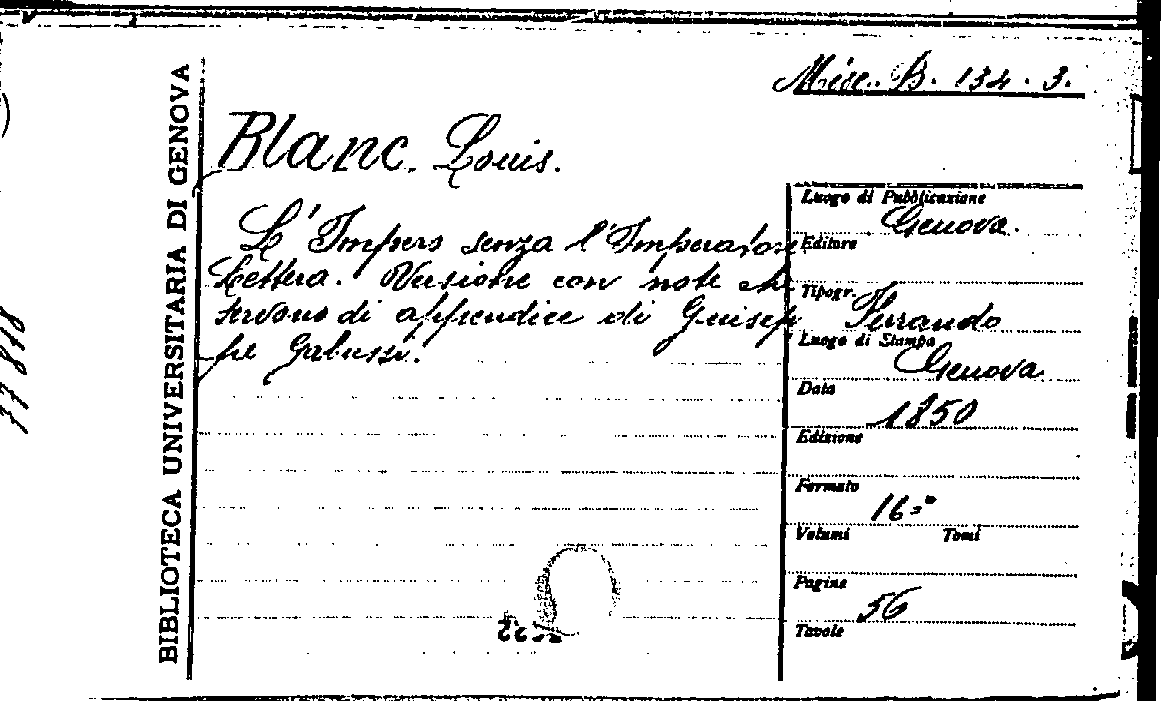 Misc. B. 134. 3.
BIBLIOTECA UNIVERSITARIA DI GENOVA
Blanc. Louis.
L'Impero senza l'Imperatore
Lettera. Versione con note che
servono di appendice di Guisep
pe Gabussi.
Luogo di Pubblicazione
Genova.
Editore
Tipogr. Ferrando
Luogo di Stampa
Genova
Data
1850
Edizione
Formato
16=°
Volumi Tomi
Pagine
56
Tavole